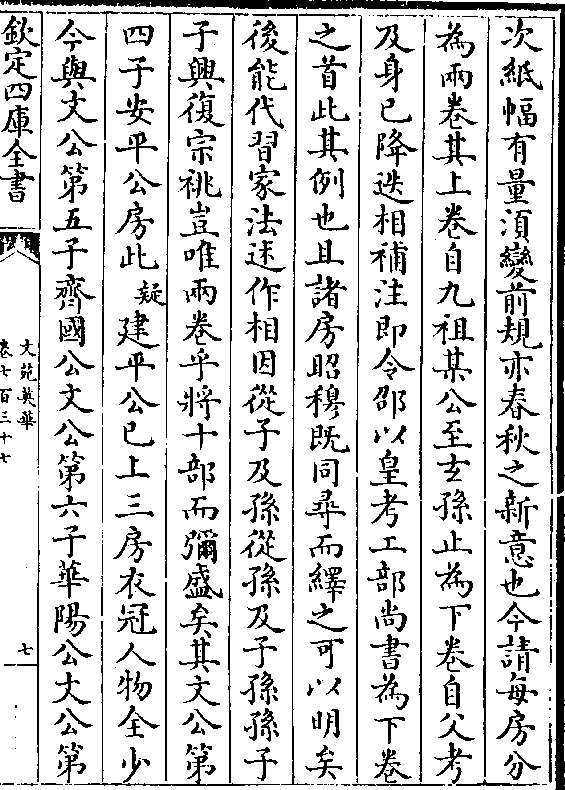 次紙幅有量須變前規亦春秋之新意也今請每房分
為兩卷其上卷自九祖某公至玄孫止為下卷自父考
及身已降迭相補注即令邵以皇考工部尚書為下卷
之首此其例也且諸房昭穆既同尋而繹之可以明矣
後能代習家法述作相因從子及孫從孫及子孫孫子
子興復宗祧豈唯兩卷乎將十部而彌盛矣其文公第
四子安平公房此疑建平公已上三房衣冠人物全少
今與文公第五子齊國公文公第六子華陽公文公第
欽定四庫全書
文苑英華
卷七百三十七
七